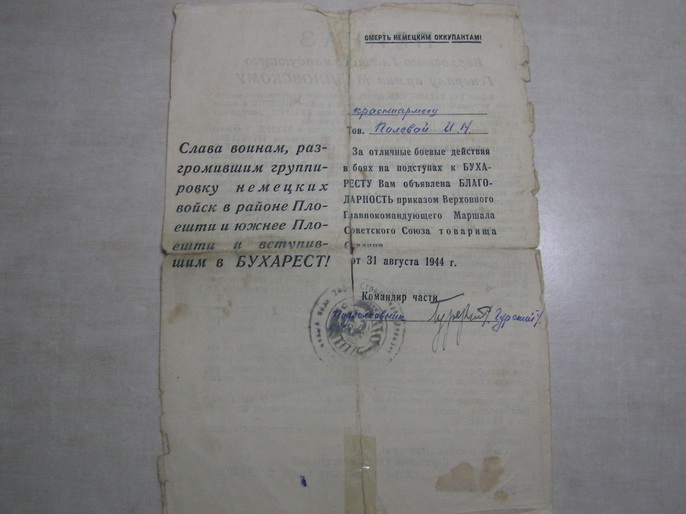 СМЕРТЬ НЕМЕЦКИМ ОККУПАНТАМ!
Слава воинам, раз-
громившим группи-
ровку немецких
войск в районе Пло-
ешти и южнее Пло-
ешти и вступив-
шим в БУХАРЕСТ!
красноармеец
Тов. Полевой И. Н.
За отличные боевые действия
в боях на подступах к БУХА-
РЕСТУ Вам объявлена БЛАГО-
ДАРНОСТЬ приказом Верховного
Главнокомандующего Маршала
Советского Союза товарища
Сталина
от 31 августа 1944 г.
Командир части
Подполковник /Гурский/